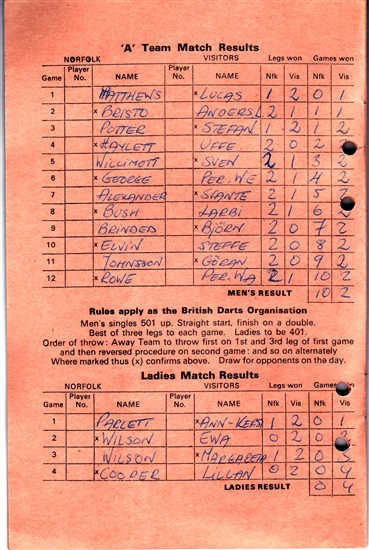 'A' Team Match Results
NORFOLK VISITORS Legs won Games won
Game Player No. NAME Player No. NAME Nfk Vis Nfk Vis
1 MATTHEWS x LUCAS 1 2 0 1
2 x BRISTO ANDERS.L 2 1 1 1
3 POTTER x STEFAN 1 2 1 2
4 x HAYLETT UFFE 2 0 2 2
5 WILLIMOTT x SVEN 2 1 3 2
6 x GEORGE PER. WE 2 1 4 2
7 ALEXANDER x SVANTE 2 1 5 2
8 x BUSH LARBI 2 1 6 2
9 BRINDED x BJÖRN 2 0 7 2
10 x ELVIN STEFFE 2 0 8 2
11 JOHNSSON x GÖRAN 2 0 9 2
12 x ROWE PER. WA 2 1 10 2
MEN'S RESULT 10 2
Rules apply as the British Darts Organisation
Men's singles 501 up. Straight start, finish on a double.
Best of three legs to each game. Ladies to be 401.
Order of throw: Away Team to throw first on 1st and 3rd leg of first game
and then reversed procedure on second game: and so on alternately
Where marked thus (x) confirms above. Draw for opponents on the day.
Ladies Match Results
NORFOLK VISITORS Legs won Games won
Game Player No. NAME Player No. NAME Nfk Vis Nfk Vis
1 PARLETT x 1 2 0 1
2 x WILSON EWA 0 2 0 2
3 WILSON x MARGARETA 1 2 0 3
4 x COOPER LILLAN 0 2 0 4
LADIES RESULT 0 4